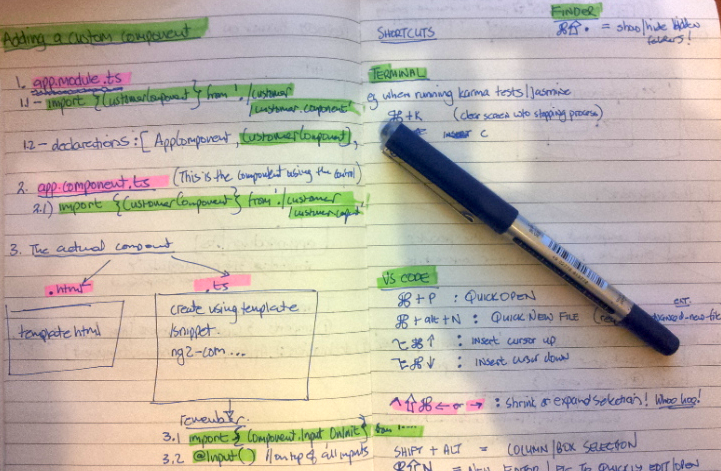 Adding a custom component
1. app.module.ts
1.1 - import {CustomerComponent} from './customer
/customer.component'
1.2 - declarations: [ AppComponent, CustomerComponent],
2. app.component.ts (This is the component using the control)
2.1) import {CustomerComponent} from './customer
3. The actual component
.html
.ts
template html
create using template
/snippet.
ng2-com ...
remember.
3.1 import { Component, Input OnInit} from '.....
3.2 @Input() // on top of all inputs
FINDER
⌘⇧. = show/hide hidden
folders!
SHORTCUTS
TERMINAL
eg when running karma tests/Jasmine
⌘+K (clear screen w/o stopping process)
C
VS CODE
⌘ + P : QUICK OPEN
ext.
⌘ + alt + N : QUICK NEW FILE
advanced-new-file
⌥⌘↑ : insert cursor up
⌥⌘↓ : insert cursor down
^⇧⌘ ← or → : shrink or expand selection! Whoo hoo!
SHIFT + ALT = COLUMN/BOX SELECTION